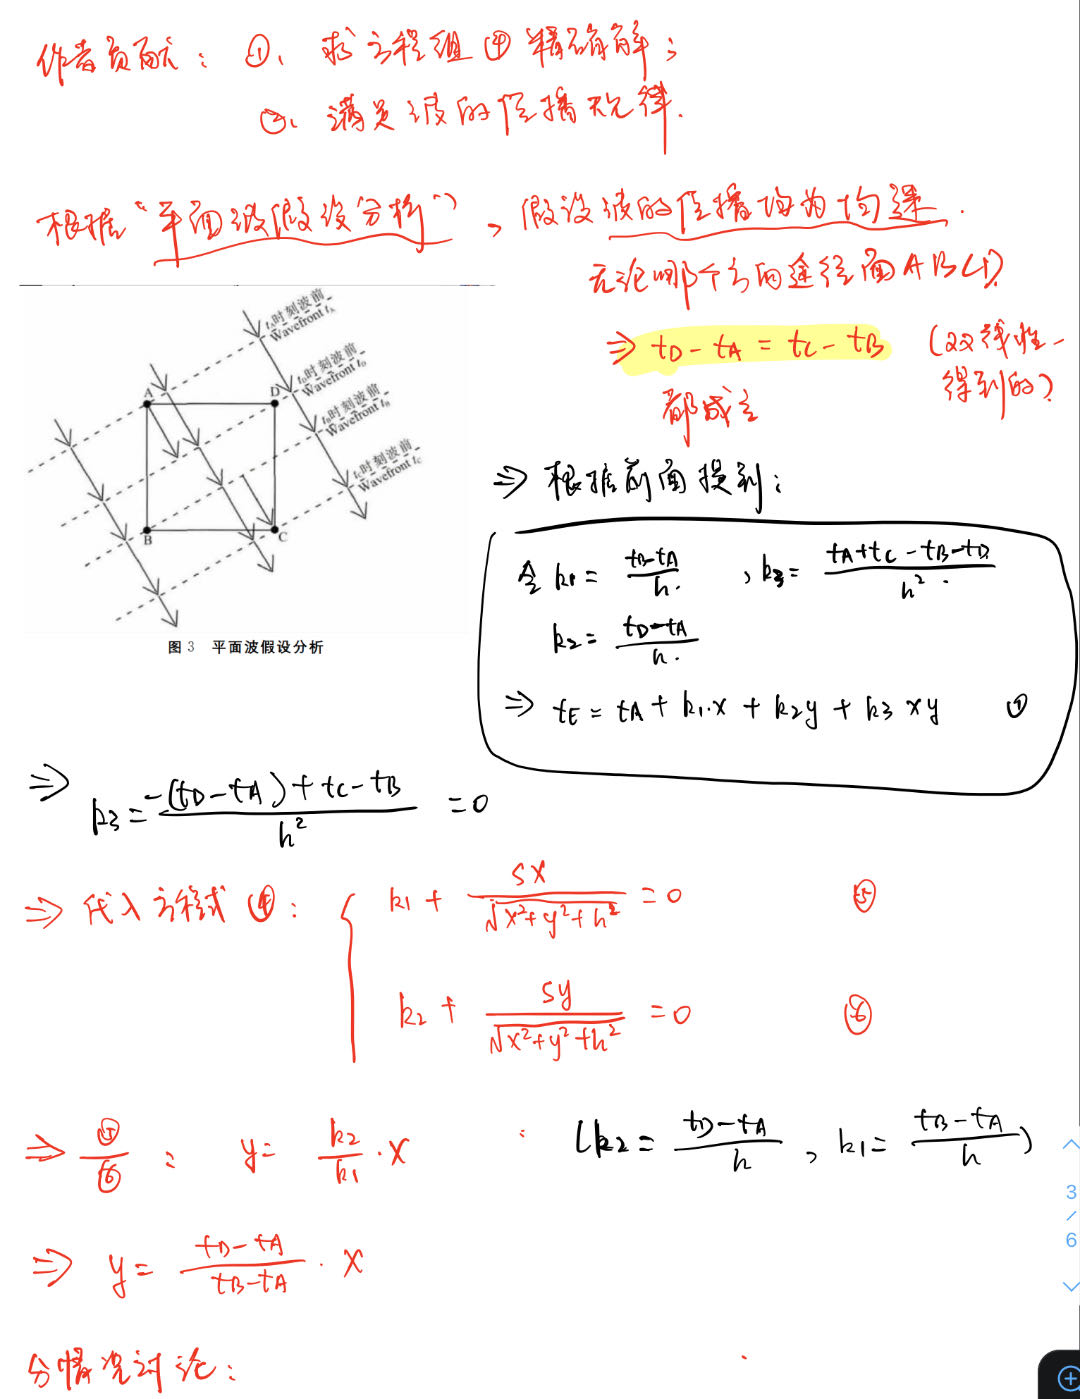 作者贡献：①、求方程组④精确解；
②、满足波的传播规律.
根据“平面波假设分析”，假设波的传播均为匀速.
无论哪个方向途径面ABCD
⇒ tD - tA = tC - tB (双线性-
得到的)
都成立
tA时刻波前
Wavefront tA
tD时刻波前
Wavefront tD
tB时刻波前
Wavefront tB
tC时刻波前
Wavefront tC
A
D
B
C
图 3 平面波假设分析
⇒ 根据前面提到：
令 k1 = (tB-tA)/h. , k3 = (tA+tC-tB-tD)/h².
k2 = (tD-tA)/h.
⇒ tE = tA + k1·x + k2y + k3xy ①
⇒ k3 = (-(tD-tA)+tC-tB)/h² = 0
⇒ 代入方程式④：
k1 + sx/√(x²+y²+h²) = 0 ⑤
k2 + sy/√(x²+y²+h²) = 0 ⑥
⇒ ⑤/⑥ : y = k2/k1 · x (k2 = (tD-tA)/h , k1 = (tB-tA)/h)
⇒ y = (tD-tA)/(tB-tA) · x
分情况讨论：
3
/
6